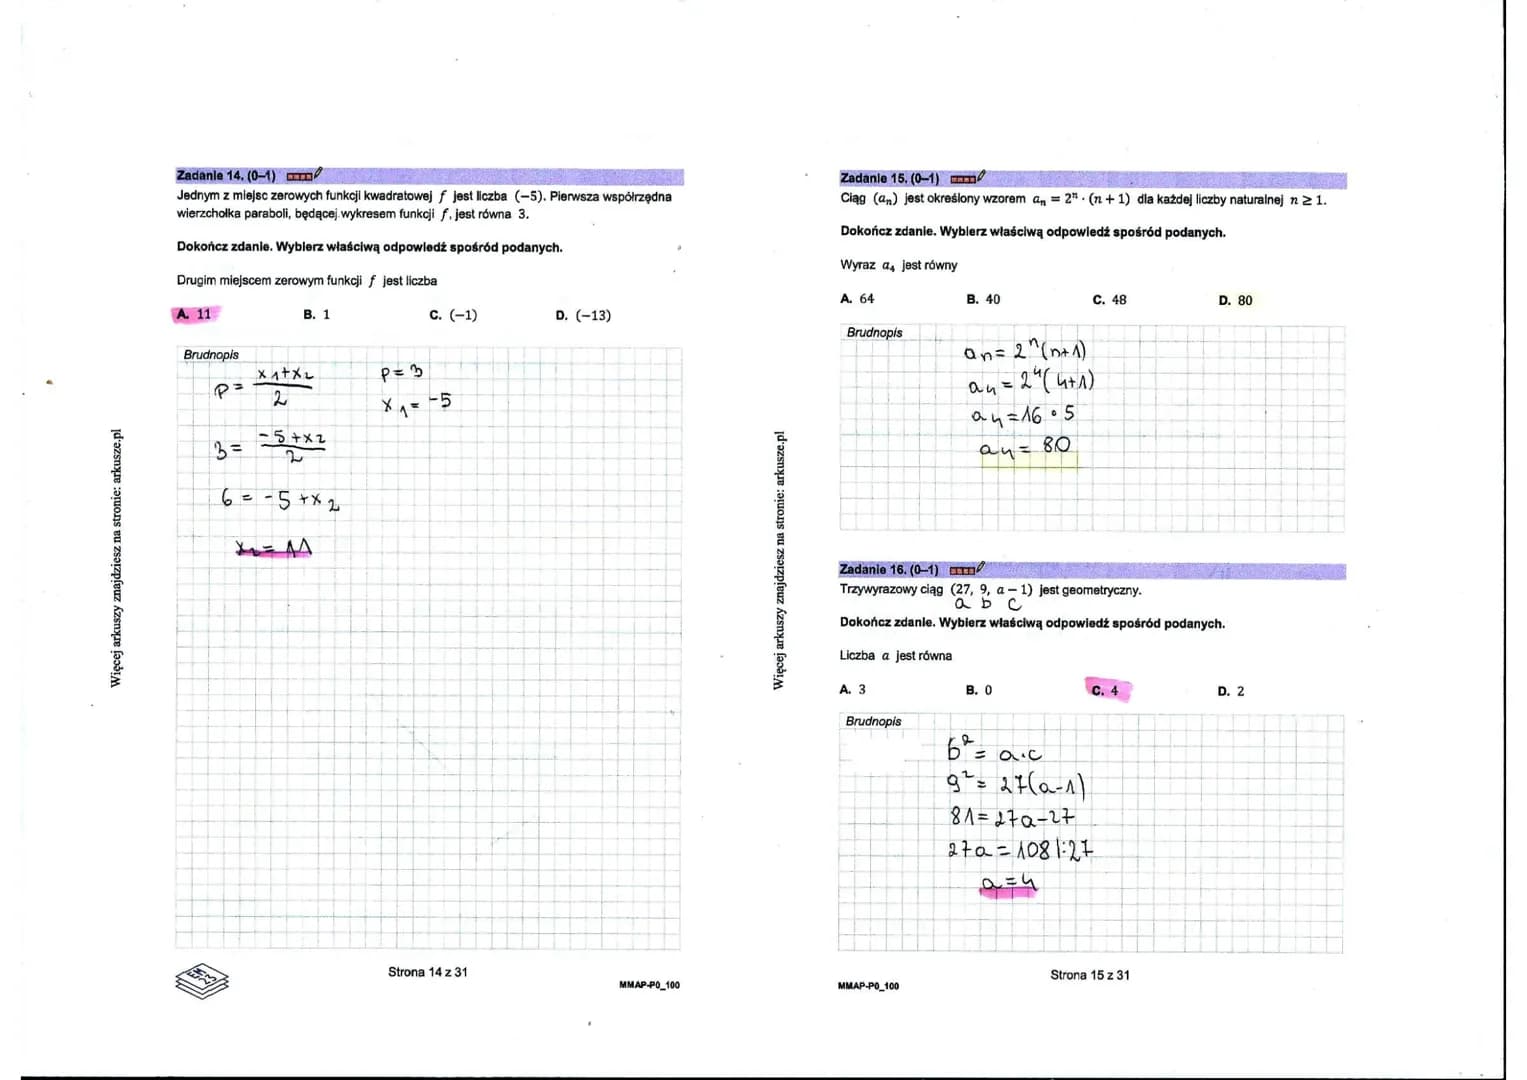 Zadanie 14. (0–1)
Jednym z miejsc zerowych funkcji kwadratowej f jest liczba (−5). Pierwsza współrzędna
wierzchołka paraboli, będącej wykresem funkcji f, jest równa 3.
Dokończ zdanie. Wybierz właściwą odpowiedź spośród podanych.
Drugim miejscem zerowym funkcji f jest liczba
A. 11 B. 1 C. (−1) D. (−13)
Brudnopis
p = (x₁+x₂)/2 p = 3
x₁ = −5
3 = (−5+x₂)/2
6 = −5 + x₂
x₂ = 11
Strona 14 z 31
MMAP-P0_100
EM
23
Więcej arkuszy znajdziesz na stronie: arkusze.pl
Zadanie 15. (0–1)
Ciąg (aₙ) jest określony wzorem aₙ = 2ⁿ · (n + 1) dla każdej liczby naturalnej n ≥ 1.
Dokończ zdanie. Wybierz właściwą odpowiedź spośród podanych.
Wyraz a₄ jest równy
A. 64 B. 40 C. 48 D. 80
Brudnopis
aₙ = 2ⁿ(n+1)
a₄ = 2⁴(4+1)
a₄ = 16 · 5
a₄ = 80
Zadanie 16. (0–1)
Trzywyrazowy ciąg (27, 9, a − 1) jest geometryczny.
a b c
Dokończ zdanie. Wybierz właściwą odpowiedź spośród podanych.
Liczba a jest równa
A. 3 B. 0 C. 4 D. 2
Brudnopis
b² = a·c
9² = 27(a−1)
81 = 27a−27
27a = 108 |:27
a = 4
Strona 15 z 31
MMAP-P0_100
Więcej arkuszy znajdziesz na stronie: arkusze.pl